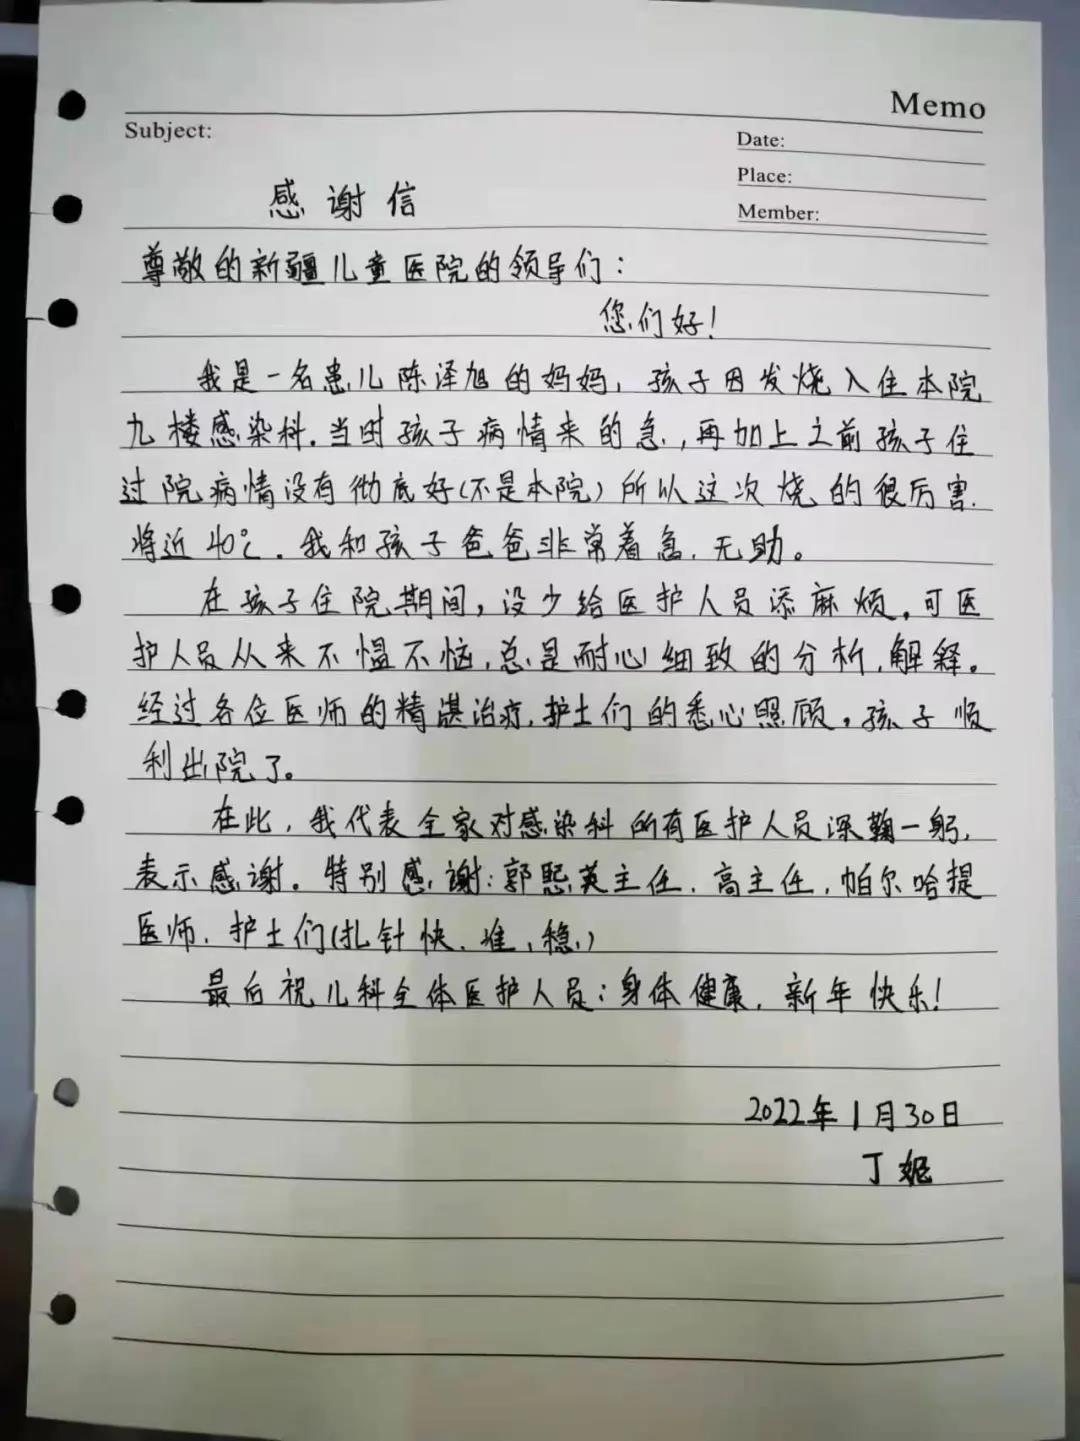 Memo
Subject:
Date:
Place:
Member:
感谢信
尊敬的新疆儿童医院的领导们：
您们好！
我是一名患儿陈泽旭的妈妈，孩子因发烧入住本院
九楼感染科.当时孩子病情来的急,再加上之前孩子住
过院病情没有彻底好(不是本院)所以这次烧的很厉害.
将近40℃.我和孩子爸爸非常着急.无助。
在孩子住院期间,没少给医护人员添麻烦.可医
护人员从来不愠不恼,总是耐心细致的分析,解释。
经过各位医师的精湛治疗.护士们的悉心照顾。孩子顺
利出院了。
在此，我代表全家对感染科所有医护人员深鞠一躬,
表示感谢。特别感谢:郭熙英主任.高主任,帕尔哈提
医师.护士们(扎针快.准,稳)
最后祝儿科全体医护人员：身体健康.新年快乐!
2022年1月30日
丁妮